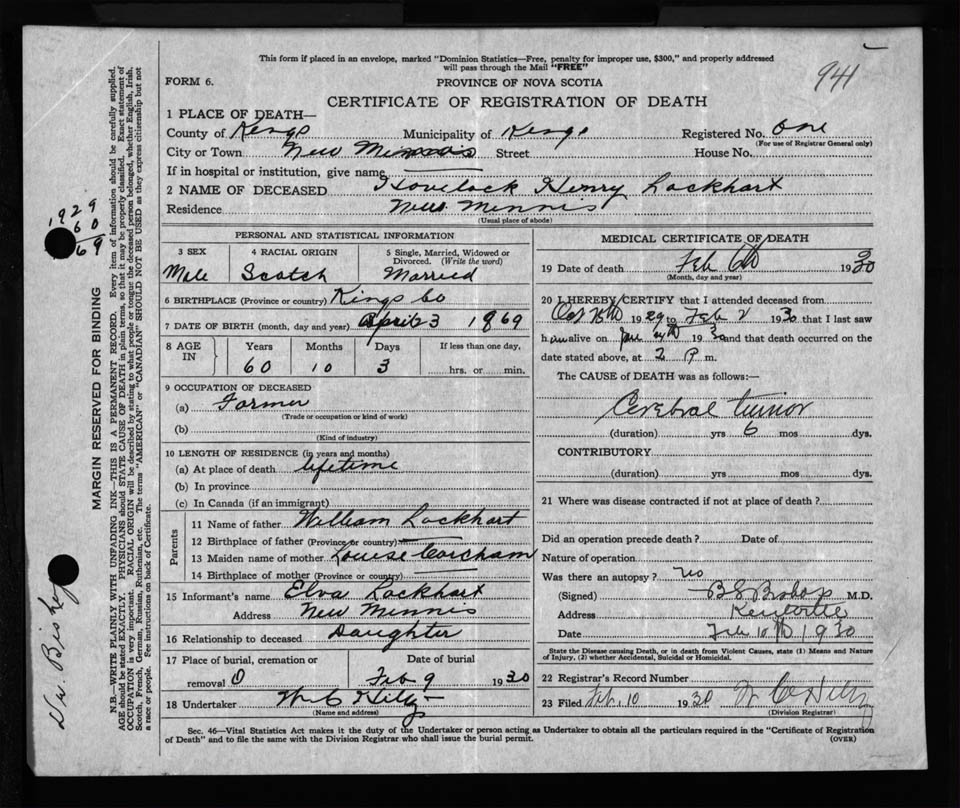 This form if placed in an envelope, marked "Dominion Statistics—Free, penalty for improper use, $300," and properly addressed
will pass through the Mail "FREE"
941
FORM 6.
PROVINCE OF NOVA SCOTIA
CERTIFICATE OF REGISTRATION OF DEATH
1 PLACE OF DEATH—
County of Kings Municipality of Kings Registered No. One
(For use of Registrar General only)
City or Town New Minnis Street House No.
If in hospital or institution, give name
2 NAME OF DECEASED Hovelock Henry Lockhart
Residence New Minnis
(Usual place of abode)
PERSONAL AND STATISTICAL INFORMATION
3 SEX 4 RACIAL ORIGIN 5 Single, Married, Widowed or
Divorced. (Write the word)
Male Scotch Married
6 BIRTHPLACE (Province or country) Kings Co
7 DATE OF BIRTH (month, day and year) April 3 1869
8 AGE IN Years Months Days If less than one day,
60 10 3 hrs. or min.
9 OCCUPATION OF DECEASED
(a) Farmer
(Trade or occupation or kind of work)
(b)
(Kind of industry)
10 LENGTH OF RESIDENCE (in years and months)
(a) At place of death lifetime
(b) In province
(c) In Canada (if an immigrant)
Parents
11 Name of father William Lockhart
12 Birthplace of father (Province or country)
13 Maiden name of mother Louise
14 Birthplace of mother (Province or country)
15 Informant's name Elva Lockhart
Address New Minnis
16 Relationship to deceased Daughter
17 Place of burial, cremation or Date of burial
removal Feb 9 1930
18 Undertaker Hiltz
(Name and address)
MEDICAL CERTIFICATE OF DEATH
19 Date of death Feb 6th 1930
(Month, day and year)
20 I HEREBY CERTIFY that I attended deceased from
Oct 1929 to Feb 2 1930 that I last saw
him alive on 1930 and that death occurred on the
date stated above, at 2 P m.
The CAUSE of DEATH was as follows:—
Cerebral tumor
(duration) yrs 6 mos dys.
CONTRIBUTORY
(duration) yrs mos dys.
21 Where was disease contracted if not at place of death?
Did an operation precede death? Date of
Nature of operation
Was there an autopsy? no
(Signed) Bishop M.D.
Address Kentville
Date Feb 10th 1930
State the Disease causing Death, or in death from Violent Causes, state (1) Means and Nature
of Injury, (2) whether Accidental, Suicidal or Homicidal.
22 Registrar's Record Number
23 Filed Feb. 10 1930 Hiltz
(Division Registrar)
Sec. 46—Vital Statistics Act makes it the duty of the Undertaker or person acting as Undertaker to obtain all the particulars required in the "Certificate of Registration
of Death" and to file the same with the Division Registrar who shall issue the burial permit. (OVER)
1929
60
69
MARGIN RESERVED FOR BINDING
N.B.—WRITE PLAINLY WITH UNFADING INK—THIS IS A PERMANENT RECORD. Every item of information should be carefully supplied.
AGE should be stated EXACTLY. PHYSICIANS should STATE CAUSE OF DEATH in plain terms, so that it may be properly classified. Exact statement of
OCCUPATION is very important. RACIAL ORIGIN will be described by stating to what people or tongue the deceased person belonged, whether English, Irish,
Scotch, French, German, Russian, Ruthenian, etc. The terms "AMERICAN" or "CANADIAN" SHOULD NOT BE USED as they express citizenship but not
a race or people. See instructions on back of Certificate.
Dr. Bishop